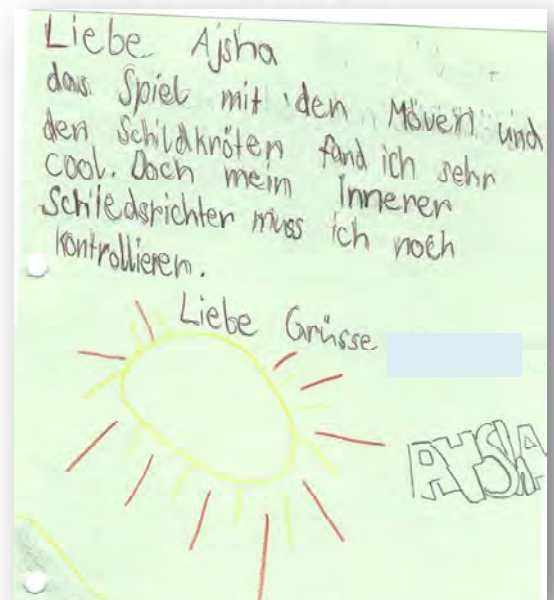 Liebe Ajsha
das Spiel mit den Möven und
den Schildkröten fand ich sehr
cool. Doch mein Innerer
Schiedsrichter muss ich noch
kontrollieren.
Liebe Grüsse
AYSHA